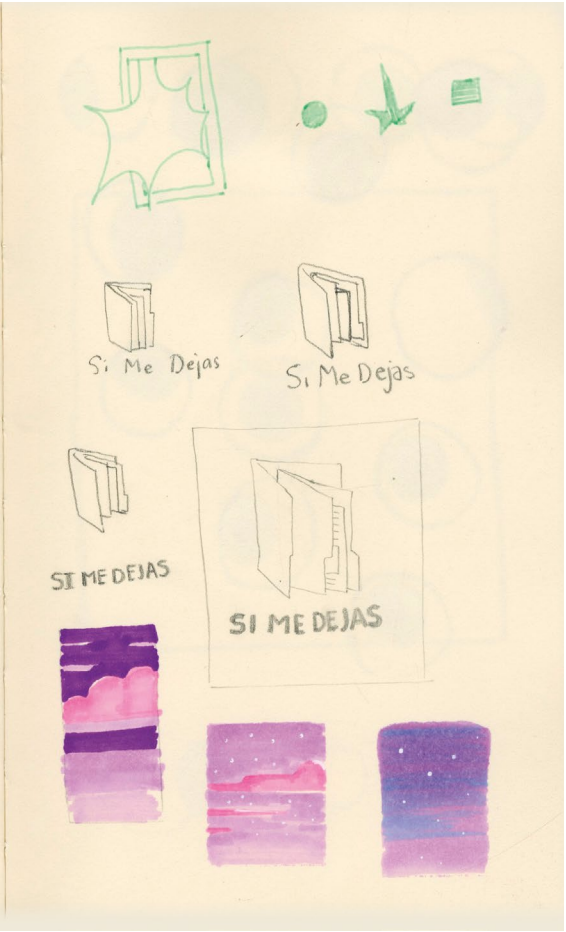 Si Me Dejas
Si Me Dejas
SI ME DEJAS
SI ME DEJAS